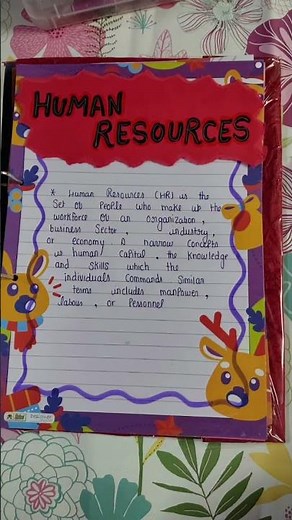 HUMAN
RESOURCES
* Human Resources (HR) is the
Set of People who make up the
workforce of an organization,
business Sector, industry,
or economy A narrow Concepts
is human Capital, the Knowledge
and skills which the
individuals Commands Similar
terms includes manpower,
labour, or Personnel